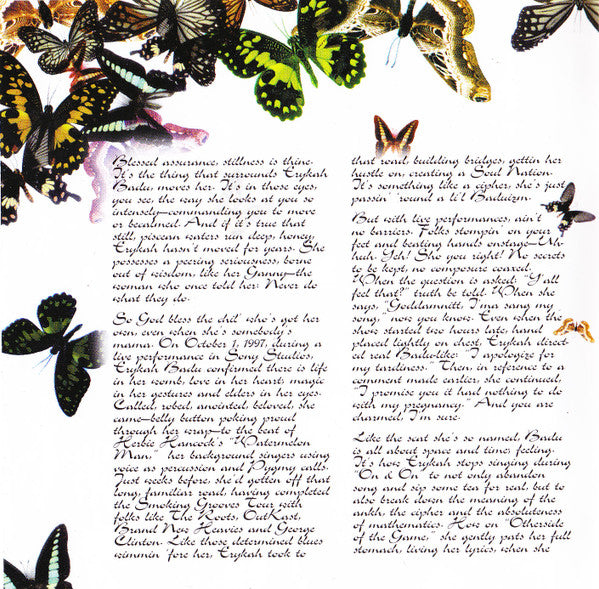 Blessed assurance, stillness is thine.
It's the thing that surrounds Erykah
Badu, moves her. It's in those eyes,
you see, the way she looks at you so
intensely—commanding you to move
or becalmed. And if it's true that
still, piscean waters run deep, honey,
Erykah hasn't moved for years. She
possesses a peering seriousness, borne
out of wisdom, like her Ganny—the
woman who once told her: Never do
what they do.
So God bless the chil' who's got her
own, even when she's somebody's
mama. On October 1, 1997, during a
live performance in Sony Studios,
Erykah Badu confirmed there is life
in her womb, love in her heart, magic
in her gestures and elders in her eyes.
Called, robed, anointed, beloved, she
came—belly button poking proud
through her wrap—to the beat of
Herbie Hancock's "Watermelon
Man," her background singers using
voice as percussion and Pygmy calls.
Just weeks before, she'd gotten off that
long, familiar road, having completed
the Smoking Grooves Tour with
folks like The Roots, OutKast,
Brand Nu Heavies and George
Clinton. Like those determined blues
wimmin 'fore her, Erykah took to
that road, building bridges, gettin her
hustle on, creating a Soul Nation.
It's something like a cipher, she's just
passin' 'round a li'l Baduizm.
But with live performances, ain't
no barriers. Folks stompin' on your
feet and beating hands onstage—Uh
huh. Yeh! Sho you right! No secrets
to be kept, no composure coaxed.
When the question is asked: "Y'all
feel that?" truth be told. When she
says, "Goddammitt, I'ma sang my
song," now you know. Even when the
show started two hours late, hand
placed lightly on chest, Erykah direct-
ed real Badu-like: "I apologize for
my tardiness." Then, in reference to a
comment made earlier, she continued,
"I promise you it had nothing to do
with my pregnancy." And you are
charmed, I'm sure.
Like the scat she's so named, Badu
is all about space and time, feeling.
It's how Erykah stops singing during
"On & On" to not only abandon
song and sip some tea for real, but to
also break down the meaning of the
ankh, the cipher and the absoluteness
of mathematics. How on "Otherside
of the Game," she gently pats her full
stomach, living her lyrics, when she